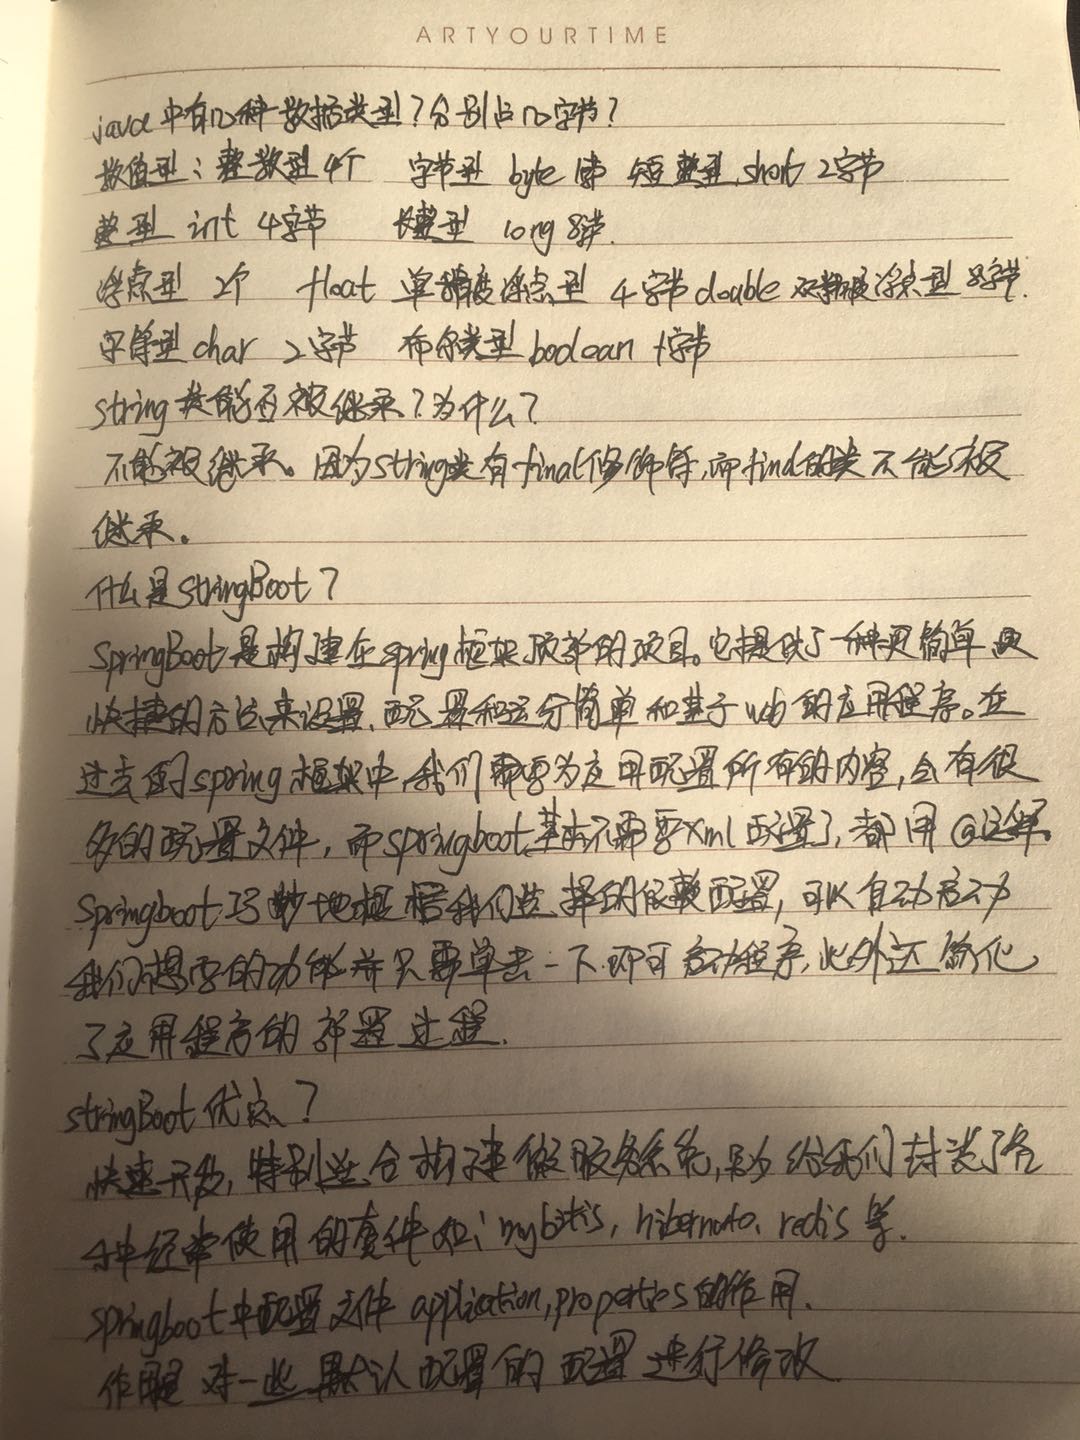 ARTYOURTIME
java中有几种数据类型?分别占几字节?
数值型:整数型4个 字节型 byte 1字节 短整型 short 2字节
整型 int 4字节 长整型 long 8字节.
浮点型 2个 float 单精度浮点型 4字节 double 双精度浮点型 8字节.
字符型 char 2字节 布尔类型 boolean 1字节
string 类能否被继承?为什么?
不能被继承。因为string类有final修饰符,而final的类不能被
继承。
什么是stringBoot?
SpringBoot是构建在spring框架顶部的项目。它提供了一种更简单更
快捷的方法来设置、配置和运行简单和基于web的应用程序。在
过去的spring框架中,我们需要为应用配置所有的内容,会有很
多的配置文件,而springboot基本不需要xml配置了,都用@
Springboot巧妙地根据我们选择的依赖配置,可以自动启动
我们想要的功能并只需单击一下即可启动程序,此外还简化
了应用程序的部署过程.
stringBoot优点?
快速开发,特别适合构建微服务系统,另为给我们封装了各
种经常使用的套件如:mybitis,hibernato、redis等.
springboot中配置文件 application,properties的作用.
作用是 对一些默认配置的配置进行修改